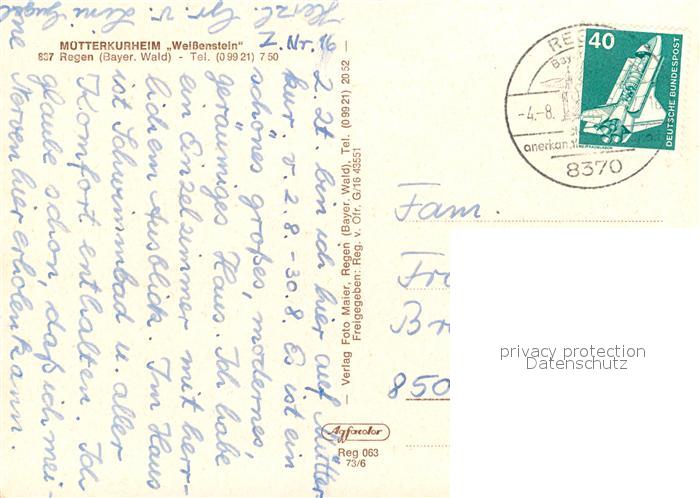 MÜTTERKURHEIM „Weißenstein"
837 Regen (Bayer. Wald) - Tel. (0 99 21) 7 50
Z. Nr. 16
z. Zt. bin ich hier auf Mütter
kur v. 2.8.-30.8. Es ist ein
schönes großes, modernes,
geräumiges Haus. Ich habe
ein Einzelzimmer mit herr-
lichen Ausblick. Im Haus
ist Schwimmbad u. aller
Komfort enthalten. Ich
glaube schon, daß ich mei-
ne Nerven hier erholen kann.
Herzl. Gr. v.
— Verlag Foto Maier, Regen (Bayer. Wald), Tel. (0 99 21) 20 52 —
Freigegeben: Reg. v. Ofr. G/16 43551
Agfacolor
Reg 063
73/6
40
DEUTSCHE BUNDESPOST
RE
-4.-8.
anerkan
8370
Fam.
Fr
Br
850
privacy protection
Datenschutz